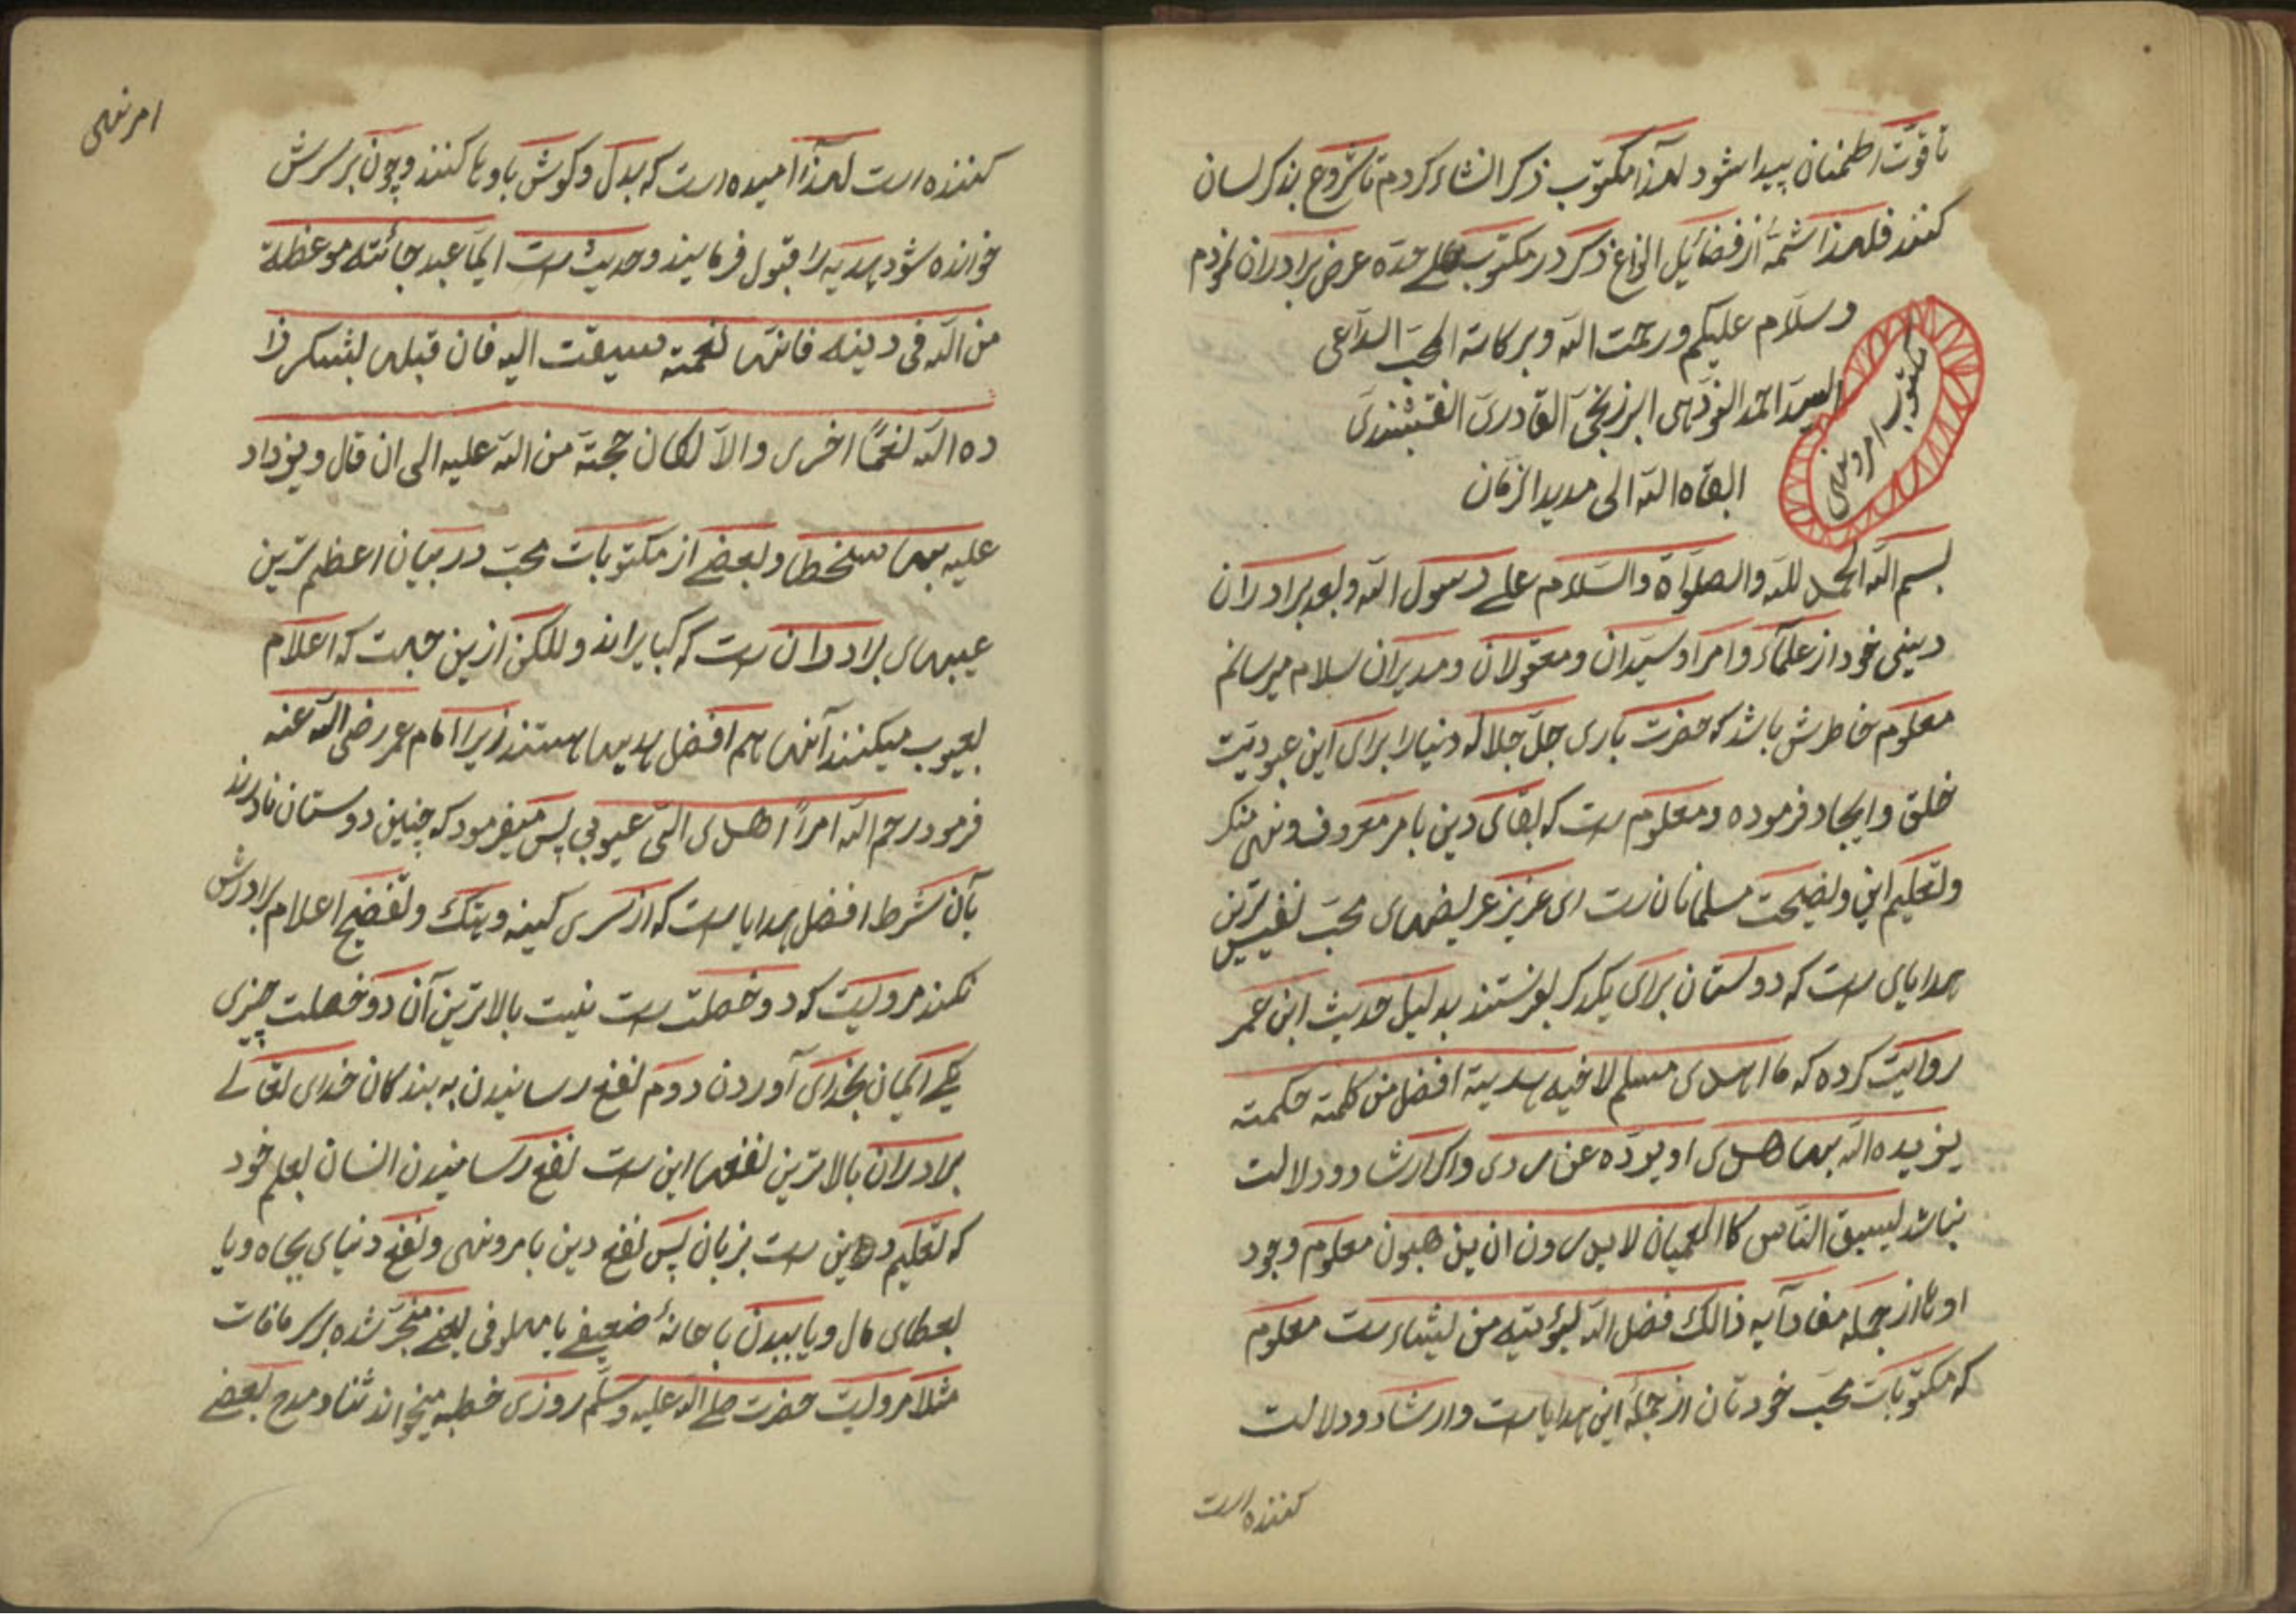 تا قوّت اطمنان پیدا شود لهذا مکتوب ذکر انشاء کردم تا شروع بذکر لسان
کنند فلهذا شمۀ از فضائیل انواع ذکر در مکتوب علی حدّه عرض برادران نمودم
وسلام علیکم ورحمت الله وبرکاته المحبّ الدّاعی
السیّد احمد البرزنجیّ القادریّ النقشبندیّ
ابقاه الله الی مدید الزمان
مکتوب امر و نهی
بسم الله الحمد للّه والصلوٰاة والسّلام علی رسول الله وبعد برادران
دینی خود از علمآء وامرا وسیّدان ومعقولان ومدیران سلام میرسانم
معلوم خاطرش باشد که حضرت باری جلّ جلاله دنیا را برای این عبودیّت
خلق وایجاد فرموده ومعلوم ست که بقای دین بامر معروف ونهی منکر
وتعلیم این ونصیحت مسلمانان ست ای عزیز عریضهای محبّ نفیس ترین
هدایای ست که دوستان برای یکدکر بفرستند بدلیل حدیث ابن عمر
روایت کرده که ما اهدی مسلم لاخیه هدیة افضل من کلمته حکمته
یزیده الله بها هدی او یردّه عن ردی واکر ارشاد ودلالت
نباشد لیبق النّاس کالعمیان لایدرون این یذهبون معلوم وجود
اوها از جمله مفاد آیه ذالک فضل الله یؤتیه من یشاء ست معلوم
که مکتوبات محبّ خودتان از جملۀ این هدایا ست وارشاد ودلالت
کننده است
امر نهی
کننده است لهذا امیده است که بدل وکوش باوها کنند وچون بر سرش
خوانده شود هدیه را قبول فرمایند وحدیث ست ایّما عبد جائته موعظة
من الله فی دینه فانها نعمته سیقت الیه فان قبلها بشکر زا
ده الله نعمًا اخری والّا لکان حجّتة من الله علیه الی ان قال ویزداد
علیه بها سخطا وبعضی از مکتوبات محبّ در بیان اعظم ترین
عیبهای برادران ست که کبایراند وللکن ازین جهت که اعلام
بعیوب میکنند آنها هم افضل هدیها هستند زیرا امام عمر رضی الله عنه
فرمود رحم الله امرأً اهدی الیّ عیوبی پس میفرمود که چنین دوستان نادرند
بآن شرط افضل هدایا ست که از سری کینه وهتک وتفضیح اعلام برادرش
نکند مرویست که دو خصلت ست نیست بالاترین آن دو خصلت چیزی
یکی ایمان بخدای آوردن دوم نفع رسانیدن به بندکان خدای تعالی
برادران بالاترین نفعها این ست نفع رسانیدن انسان بعلم خود
که تعلیم دین ست بزبان پس نفع دین بامر ونهی ونفع دنیای بجاه ویا
بعطای مال ویا ببدن با عانۀ ضعیفی یا ملهوفی یعنی متحیّر شده بر سر مافات
مثلا مرویست حضرت صلی الله علیه وسلّم روزی خطبه میخواند ثنا ومدح بعضی